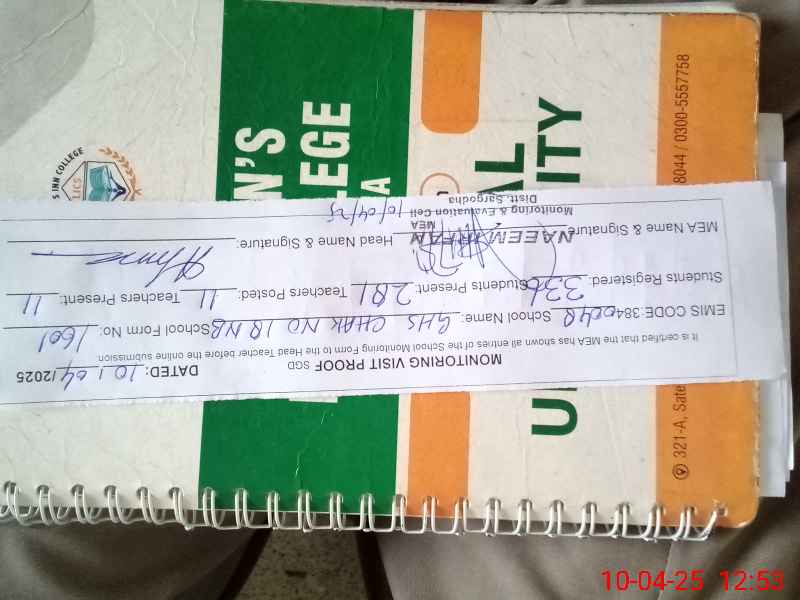 MONITORING VISIT PROOF SGD
DATED: 10/04/2025
It is certified that the MEA has shown all entries of the School Monitoring Form to the Head Teacher before the online submission
EMIS CODE:384 0048 School Name: GHS CHAK NO 18 NB School Form No: 1601
Students Registered: 336 Students Present: 281 Teachers Posted: 11 Teachers Present: 11
MEA Name & Signature: Head Name & Signature:
NAEEM IRFAN
MEA
Monitoring & Evaluation Cell
Distt. Sargodha
10/04/25
S INN COLLEGE
N'S
LEGE
A
AL
ITY
U
321-A, Sate
8044 / 0300-5557758
10-04-25 12:53